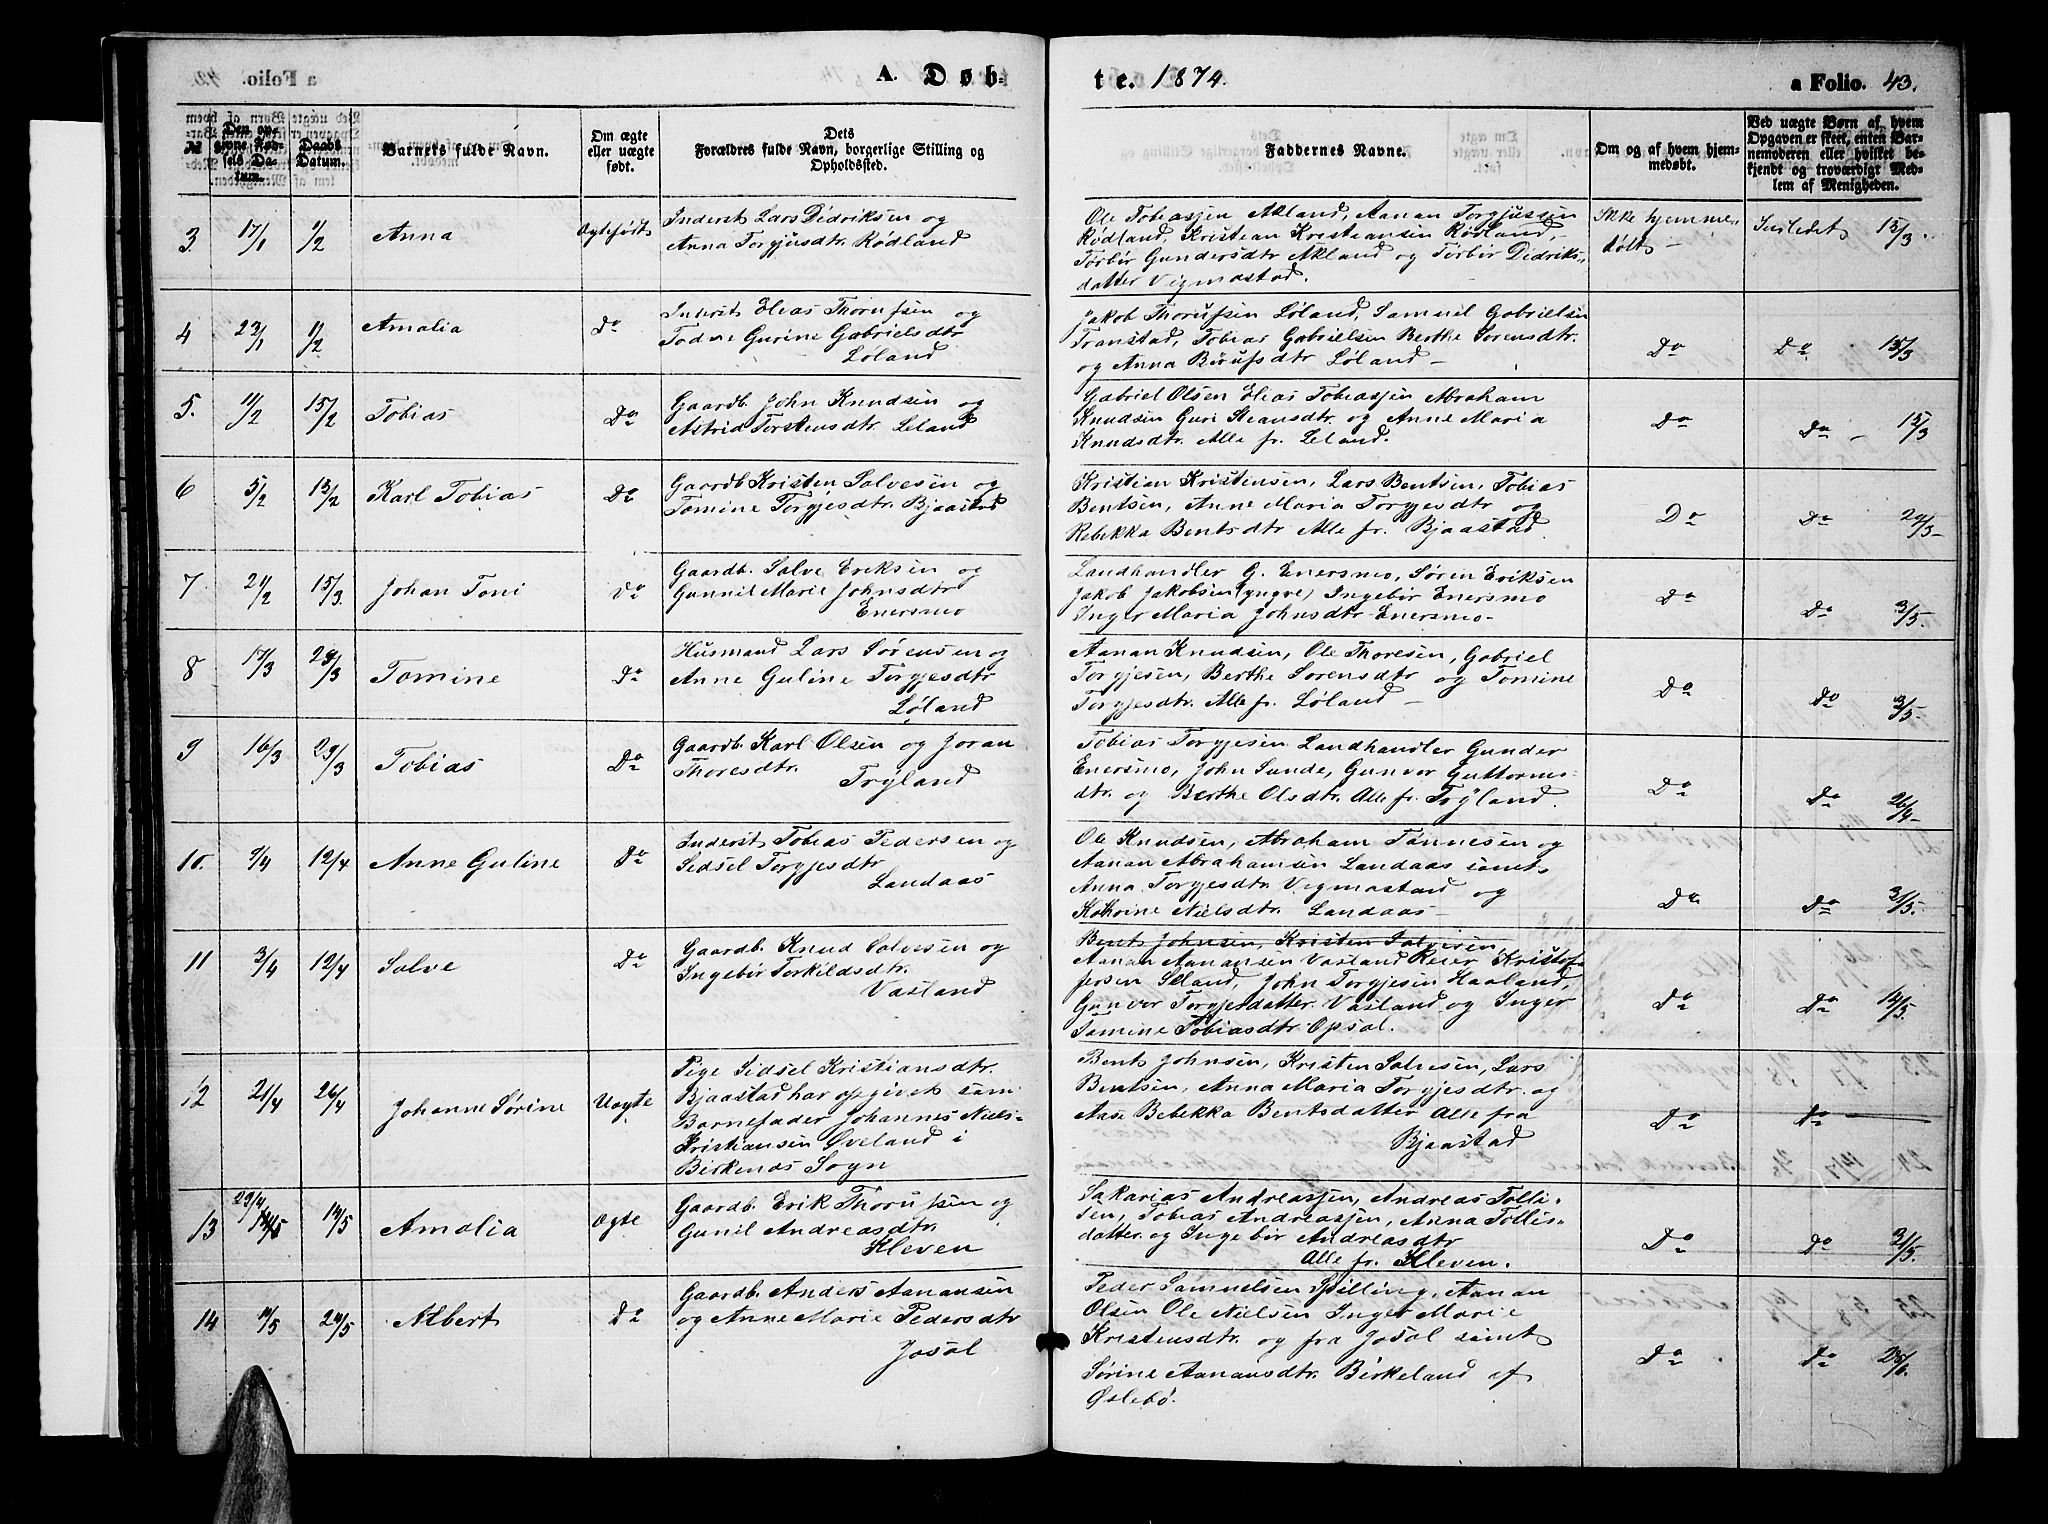 A. Døb-
te. 1874.
a Folio. 43.
№
Den op-
givne Fød-
sels Da-
tum.
Daabs
Datum.
Barnets fulde Navn.
Om ægte
eller uægte
født.
Dets
Forældres fulde Navn, borgerlige Stilling og
Opholdssted.
Faddernes Navne.
Om og af hvem hjem-
medøbt.
Ved uægte Børn af, hvem
Opgaven er skeet, enten Bar-
nemoderen eller hvilket be-
kjendt og troværdigt Med-
lem af Menigheden.
3 17/1 1/2 Anna Ægtefødt
Inderst Lars Didriksen og
Anna Torgjusdtr. Rødland
Ole Tobiassen Akland, Aanan Torgjussen
Rødland, Kristian Kristiansen Rødland,
Torbør Gundersdtr Akland og Torbør Didriks-
datter Vigmostad.
Ikke hjemme-
døbt - 15/3.
4 23/1 1/2 Amalia Do
Inderst Elias Thorufsen og
Todne Gurine Gabrielsdtr
Løland
Jakob Thorufsen Løland, Samuel Gabrielsen
Transtad, Tobias Gabrielsen Berthe Sorensdtr.
og Anna Börufsdtr Løland -
Do Do 15/3
5. 11/2 15/2 Tobias Do
Gaardb. John Knudsen og
Astrid Torstensdtr. Leland
Gabriel Olsen Elias Tobiassen Abraham
Knudsen Guri Steansdtr. og Anne Maria
Knudsdtr. Alle fr. Leland.
Do Do - 15/3
6 5/2 15/2 Karl Tobias Do
Gaardb Kristen Salvesen og
Tomine Torgjesdtr. Bjaastad
Kristian Kristensen, Lars Bentsen, Tobias
Bentsen, Anne Maria Torgjesdtr og
Rebekka Bentsdtr Alle fr. Bjaastad.
Do Do 29/3-
7 21/2 15/3. Johan Toni Do
Gaardb. Salve Eriksen og
Gunnil Marie Johnsdtr
Enersmo
Landhandler G. Enersmo, Søren Eriksen
Jakob Jakobsen (yngre) Ingebør Enersmo
Inger Maria Johnsdtr Enersmo-
Do Do 3/5.
8 17/3 29/3 Tomine Do
Husmand Lars Sørensen og
Anne Guline Torgjesdtr
Løland
Aanan Knudsen, Ole Thoresen, Gabriel
Torgjesen, Berthe Sorensdtr og Tomine
Torgjesdtr. Alle fr. Løland -
Do Do 3/5.
9 16/3 29/3 Tobias Do
Gaardb. Karl Olsen og Joran
Thoresdtr.
Trÿland
Tobias Torgjesen Landhandler Gunder
Enersmo, John Sunde, Gunvor Guttorms-
dtr. og Berthe Olsdtr. Alle fr. Trÿland.
Do Do 26/4-
10. 9/4 12/4 Anne Guline Do
Inderst Tobias Pedersen og
Sidsel Torgjesdtr
Landaas
Ole Knudsen, Abraham Tønnesen og
Aanan Abrahamsen Landaas samt
Anna Torgjesdtr Vigmostad og
Kathrine Nielsdtr. Landaas -
Do. Do 31/5.
11 3/4 12/4 Salve Do
Gaardb. Knud Salvesen og
Ingebør Torkildsdtr.
Vasland
Bent Johnsen, Kristen Salvesen,
Aanan Aanansen Vasland Reier Kristof-
fersen Eland, John Torgjesen Haaland,
Gunvor Torgjesdatter Vasland og Inger
Tomine Tobiasdtr. Opsal.
Do Do 14/5.
12 21/4 26/4 Johanne Sørine Uægte
Pige Sidsel Kristiansdtr.
Bjaastad har opgivet som
Barnefader Johannes Niels-
Kristiansen Øveland i
Birkenes Sogn
Bent Johnsen, Kristen Salvesen, Lars
Bentsen, Anna Maria Torgjesdtr. og
Aase Bebekka Bentsdatter Alle fra
Bjaastad
Do Do
13 29/4 14/5 Amalia Ægte
Gaardb. Erik Thorufsen og
Gunil Andreasdtr.
Kleven
Sakarias Andreassen, Andreas Tolli-
sen, Tobias Andreassen, Anna Tollis-
datter og Ingebør Andreasdtr
Alle fr. Kleven.
Do Do 31/5.
14 11/5 24/5 Albert Do
Gaardb. Anders Aanansen
og Anne Marie Pedersdtr
Josøl
Peder Samuelsen Spilling, Aanan
Olsen Ole Nielsen Inger Marie
Kristensdtr. og fra Josøl samt
Sørine Aanansdtr. Birkeland af
Øslebø.
Do Do 28/6.